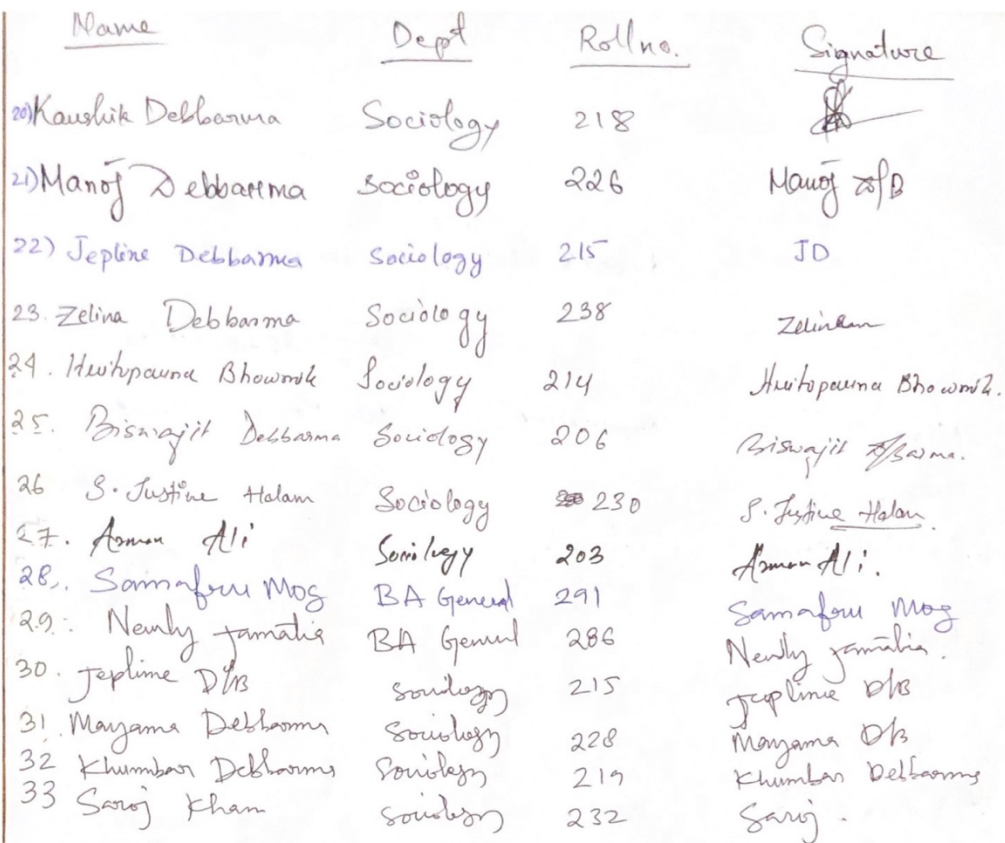 Name Dept Roll no. Signature
20) Kaushik Debbarma Sociology 218
21) Manoj Debbarma Sociology 226 Manoj D/B
22) Jepline Debbarma Sociology 215 JD
23. Zelina Debbarma Sociology 238
24. Hritoparna Bhowmik Sociology 214 Hritoparna Bhowmik.
25. Biswajit Debbarma Sociology 206 Biswajit D/Barma.
26 S. Justine Halam Sociology 230 S. Justine Halam
27. Arman Ali Sociology 203 Arman Ali.
28. Samafru Mog BA General 291 Samafru Mog
29. Newly Jamatia BA General 286 Newly Jamatia.
30. Jepline D/B Sociology 215 Jepline D/B
31. Mayama Debbarma Sociology 228 Mayama D/B
32 Khumbar Debbarma Sociology 219 Khumbar Debbarma
33 Saroj Kham Sociology 232 Saroj.